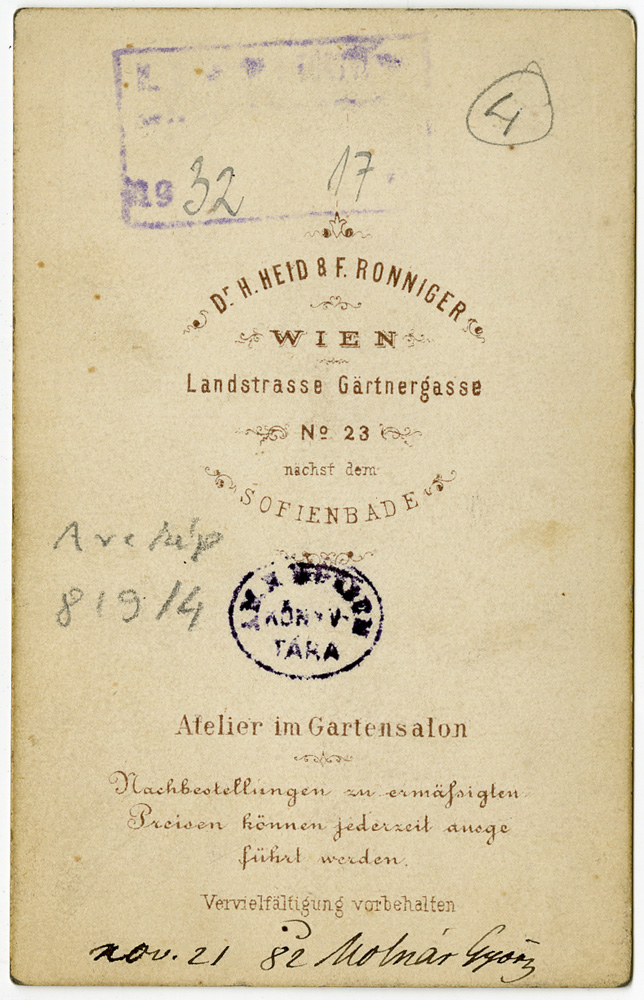 4
1932 17
Dr H. HEID & F. RONNIGER
WIEN
Landstrasse Gärtnergasse
No 23
nächst dem
SOFIENBADE
Arckép
819/4
KÖNYV-
TÁRA
Atelier im Gartensalon
Nachbestellungen zu ermäſsigten
Preisen können jederzeit ausge
führt werden.
Vervielfältigung vorbehalten
nov. 21 82 Molnár György